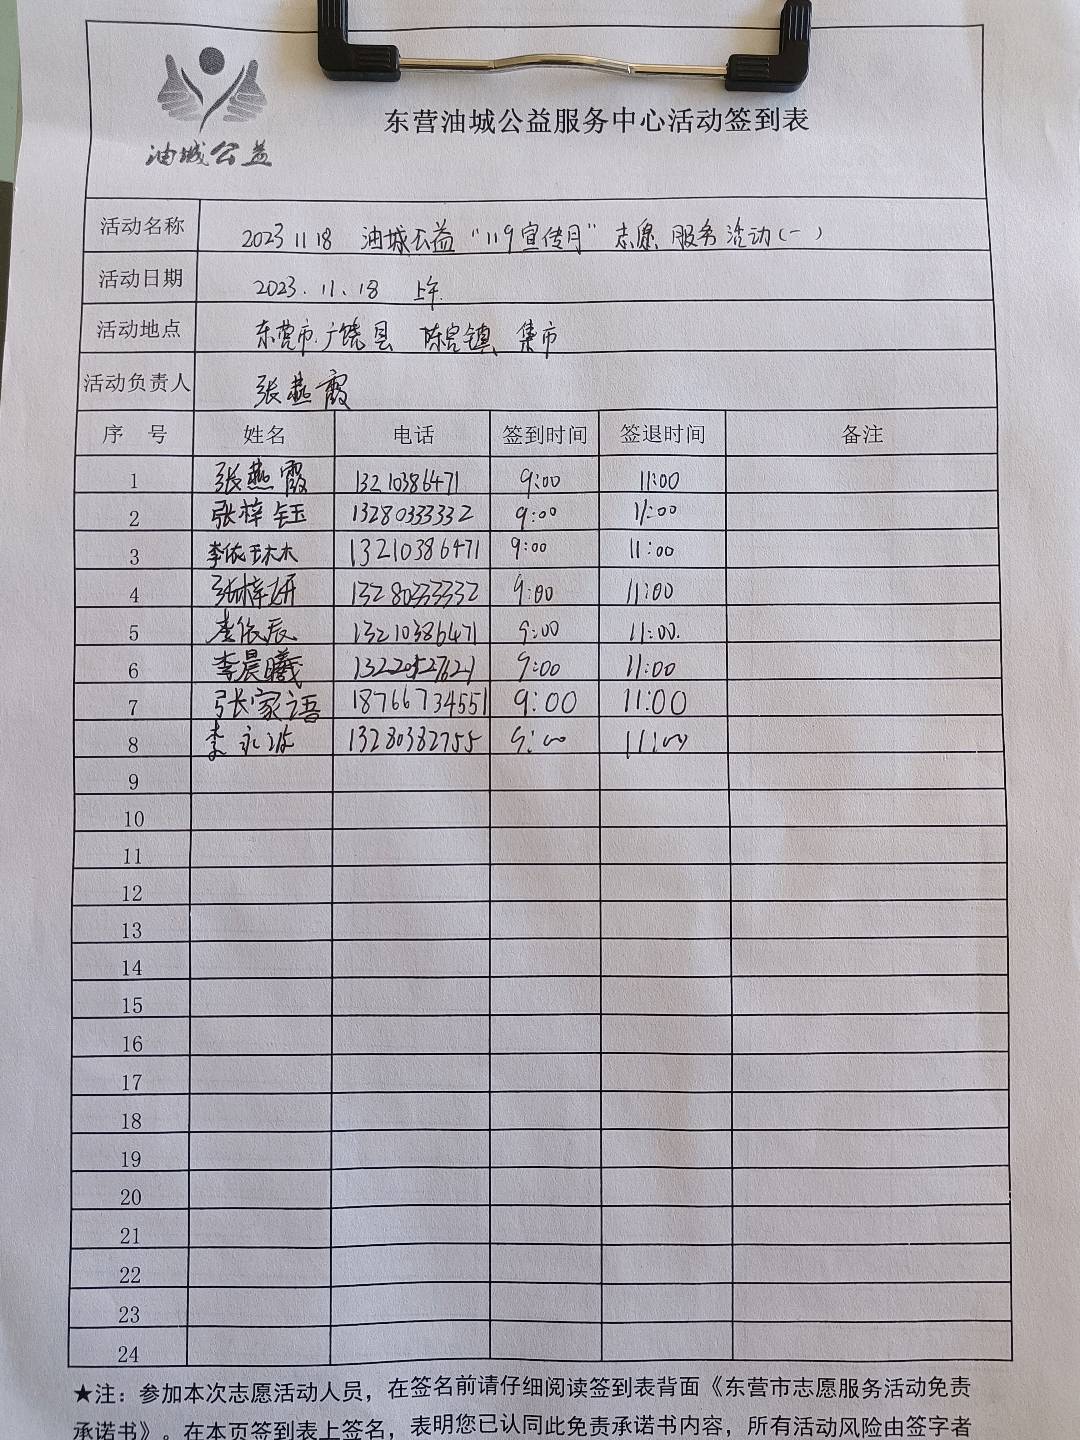 油城公益
东营油城公益服务中心活动签到表
活动名称 2023 11 18 油城公益“119宣传月”志愿服务活动(一)
活动日期 2023.11.18 上午.
活动地点 东营市广饶县 陈官镇 集市
活动负责人 张燕霞
序 号 姓名 电话 签到时间 签退时间 备注
1 张燕霞 13210386471 9:00 11:00
2 张梓钰 13280333332 9:00 11:00
3 李依琳 13210386471 9:00 11:00
4 张梓妍 13280333332 9:00 11:00
5 李依辰 13210386471 9:00 11:00.
6 李晨曦 13220527621 9:00 11:00
7 张家语 18766734551 9:00 11:00
8 李永波 13280382755 9:00 11:00
9
10
11
12
13
14
15
16
17
18
19
20
21
22
23
24
★注：参加本次志愿活动人员，在签名前请仔细阅读签到表背面《东营市志愿服务活动免责
承诺书》。在本页签到表上签名，表明您已认同此免责承诺书内容，所有活动风险由签字者